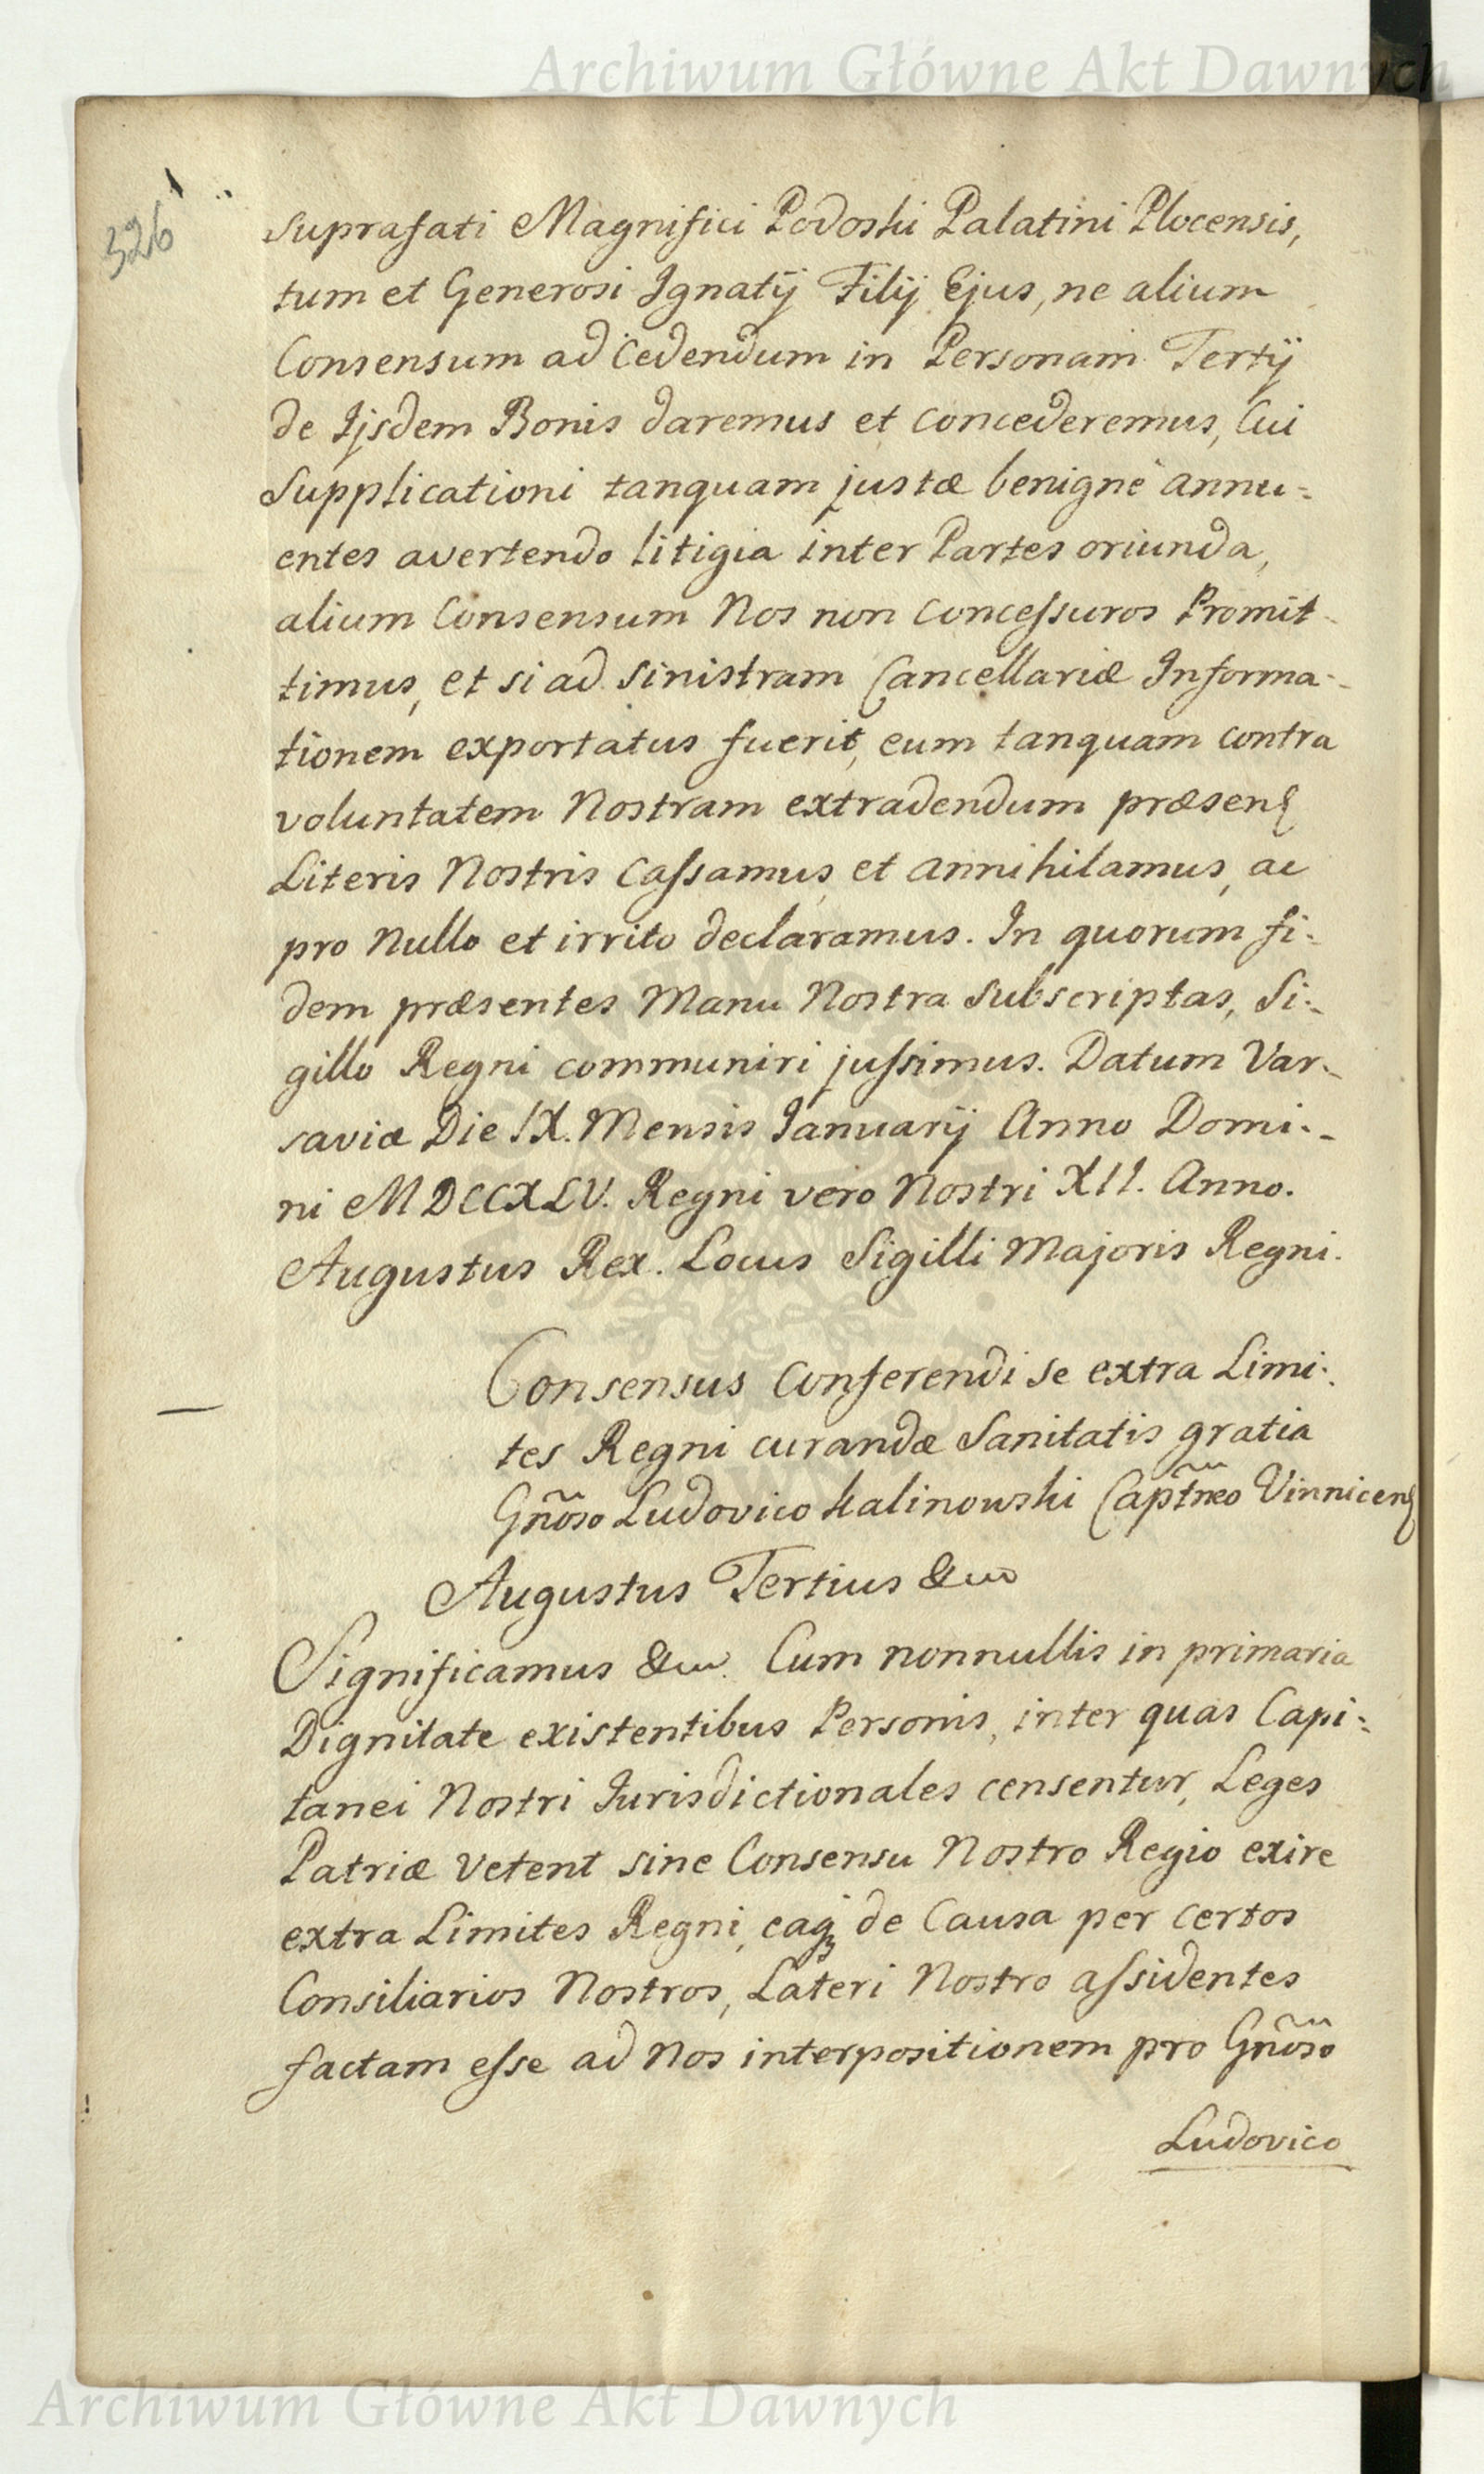 Archiwum Główne Akt Dawnych
326
suprafati Magnifici Podoski Palatini Plocensis,
tum et Generosi Ignatij Filij Ejus, ne alium
Consensum ad Cedendum in Personam Tertij
de Ijsdem Bonis daremus et concederemus, Cui
Supplicationi tanquam justæ benignè annu-
entes avertendo litigia inter Partes oriunda,
alium Consensum Nos non concessuros Promit-
timus, et si ad sinistram Cancellariæ Informa-
tionem exportatus fuerit, eum tanquam contra
voluntatem Nostram extradendum præsen
Literis Nostris Cassamus et annihilamus, ac
pro Nullo et irrito declaramus. In quorum fi-
dem præsentes Manu Nostra Subscriptas, Si-
gillo Regni communiri jussimus. Datum Var-
saviæ Die IX. Mensis Januarij Anno Domi-
ni MDCCXLV. Regni vero Nostri XII. Anno.
Augustus Rex. Locus Sigilli Majoris Regni.
Consensus Conferendi se extra Limi-
tes Regni curandæ Sanitatis gratia
Gñoso Ludovico Kalinowski Capt̃neo Vinnicen
Augustus Tertius &c
Significamus &c. Cum nonnullis in primaria
Dignitate existentibus Personis, inter quas Capi-
tanei Nostri Jurisdictionales censentur, Leges
Patriæ vetent sine Consensu Nostro Regio exire
extra Limites Regni, eaq de Causa per certos
Consiliarios Nostros, Lateri Nostro assidentes
factam esse ad Nos interpositionem pro Gñoso
Ludovico
Archiwum Główne Akt Dawnych